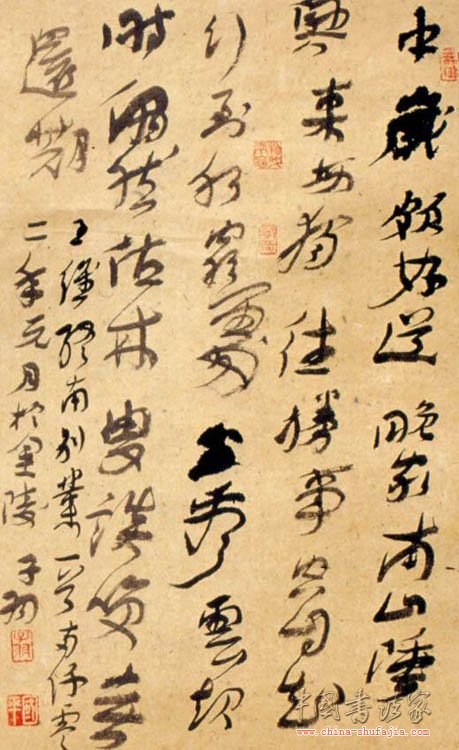 中歲頗好道晚家南山陲
興來每獨往勝事空自知
行到水窮處坐看雲起
時偶然值林叟談笑無
還期
王維終南別業一首
二年元月於金陵
中国书法家
www.china-shufajia.com